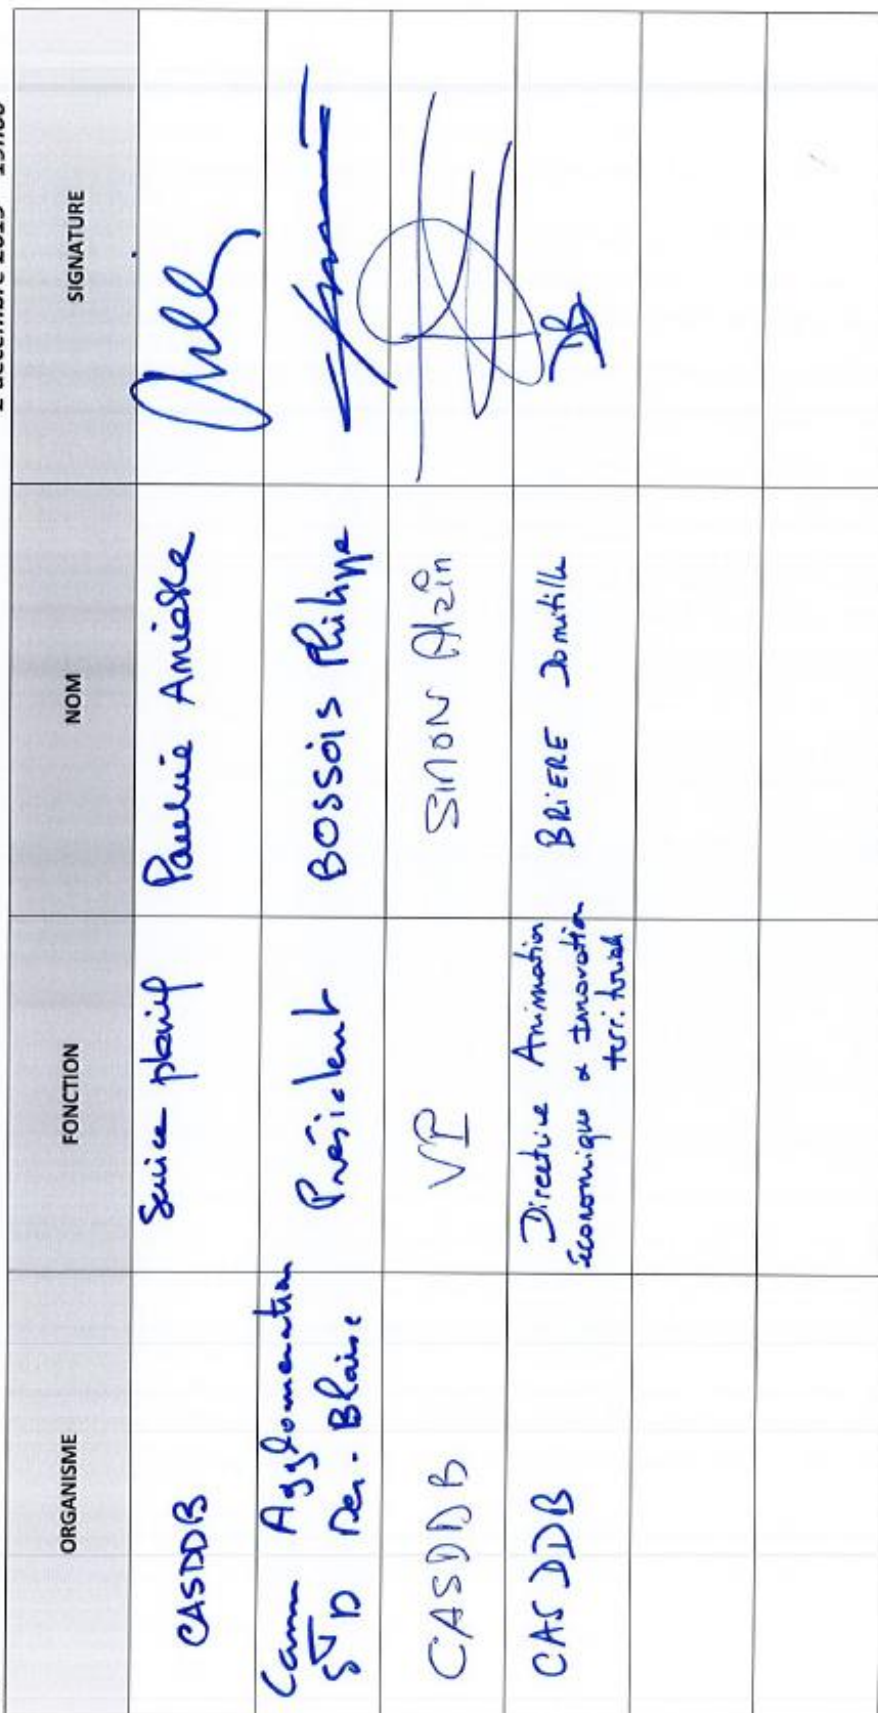 ORGANISME FONCTION NOM SIGNATURE
CASDDB Service planif Pauline Amiable
Comm Agglomération
St D Der - Blaise Président BOSSOIS Philippe
CASDDB VP SIMON Alain
CASDDB Directrice Animation
économique & Innovation
territoriale BRIERE Domitille
DB